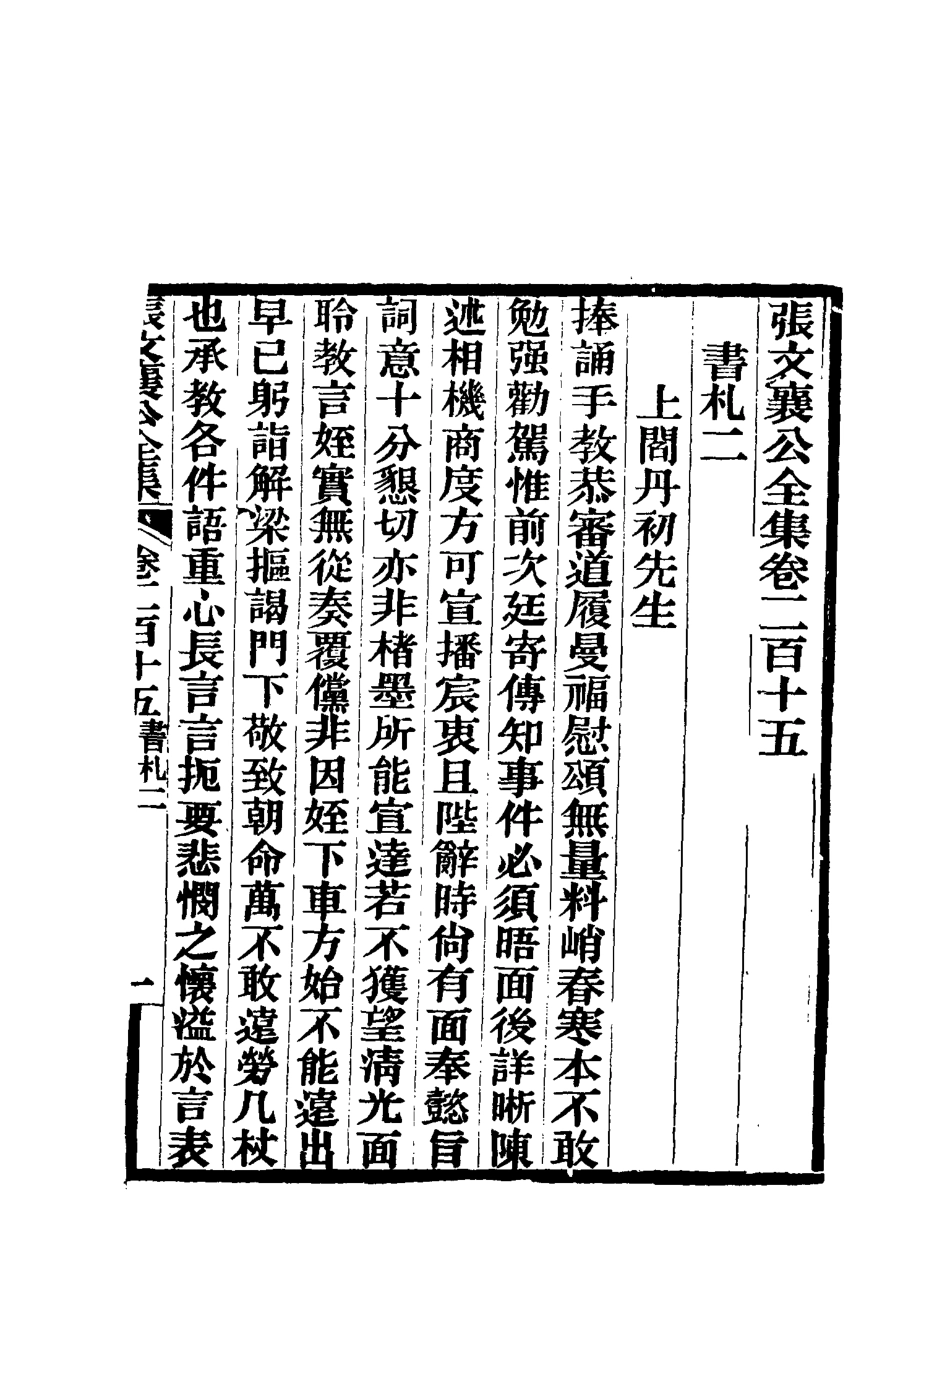 張文襄公全集卷二百十五
書札二
上閻丹初先生
捧誦手教恭審道履曼福慰頌無量料峭春寒本不敢
勉强勸駕惟前次廷寄傳知事件必須晤面後詳晰陳
述相機商度方可宣播宸衷且陛辭時尙有面奉懿旨
詞意十分懇切亦非楮墨所能宣達若不獲望淸光面
聆教言姪實無從奏覆儻非因姪下車方始不能遠出
早已躬詣解梁摳謁門下敬致朝命萬不敢遠勞几杖
也承教各件語重心長言言扼要悲憫之懷溢於言表
張文襄公全集 卷二百十五 書札二 一